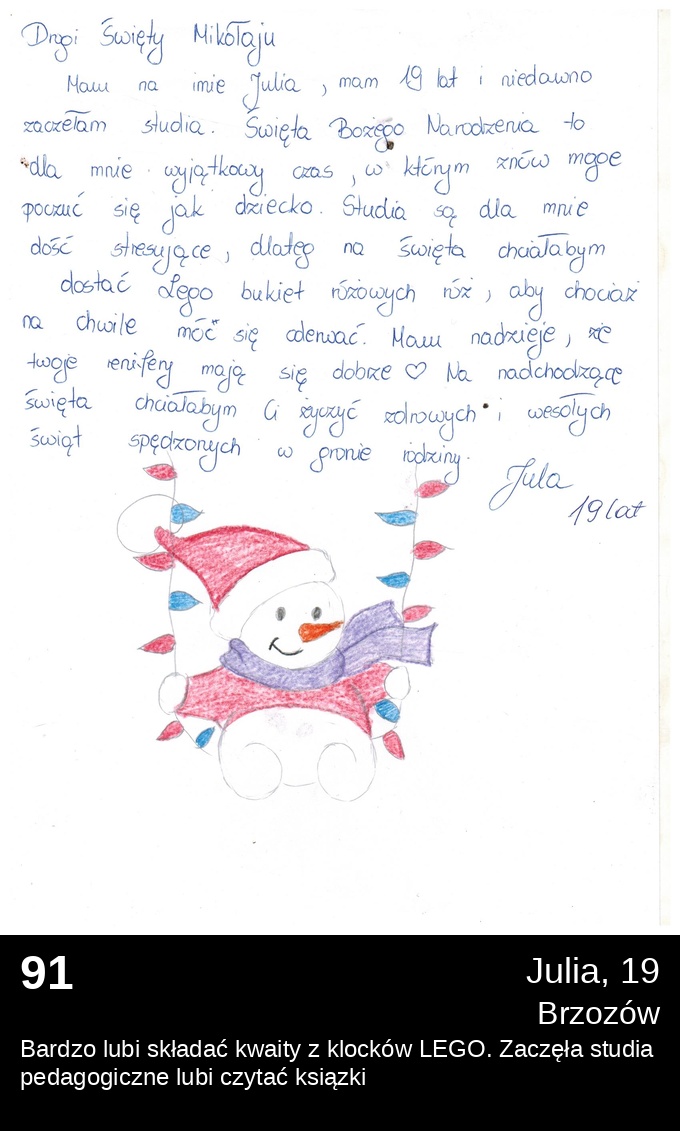 Drogi Święty Mikołaju
Mam na imie Julia, mam 19 lat i niedawno
zaczełam studia. Święta Bożego Narodzenia to
dla mnie wyjątkowy czas, w którym znów mogę
poczuć się jak dziecko. Studia są dla mnie
dość stresujące, dlateg na święta chciałabym
dostać Lego bukiet różowych róż, aby chociaż
na chwile móc się oderwać. Mam nadzieje, że
twoje renifery mają się dobrze ♡ Na nadchodzące
święta chciałabym Ci życzyć zdrowych i wesołych
świąt spędzonych w gronie rodziny.
Jula
19 lat
91
Julia, 19
Brzozów
Bardzo lubi składać kwaity z klocków LEGO. Zaczęła studia
pedagogiczne lubi czytać ksiązki